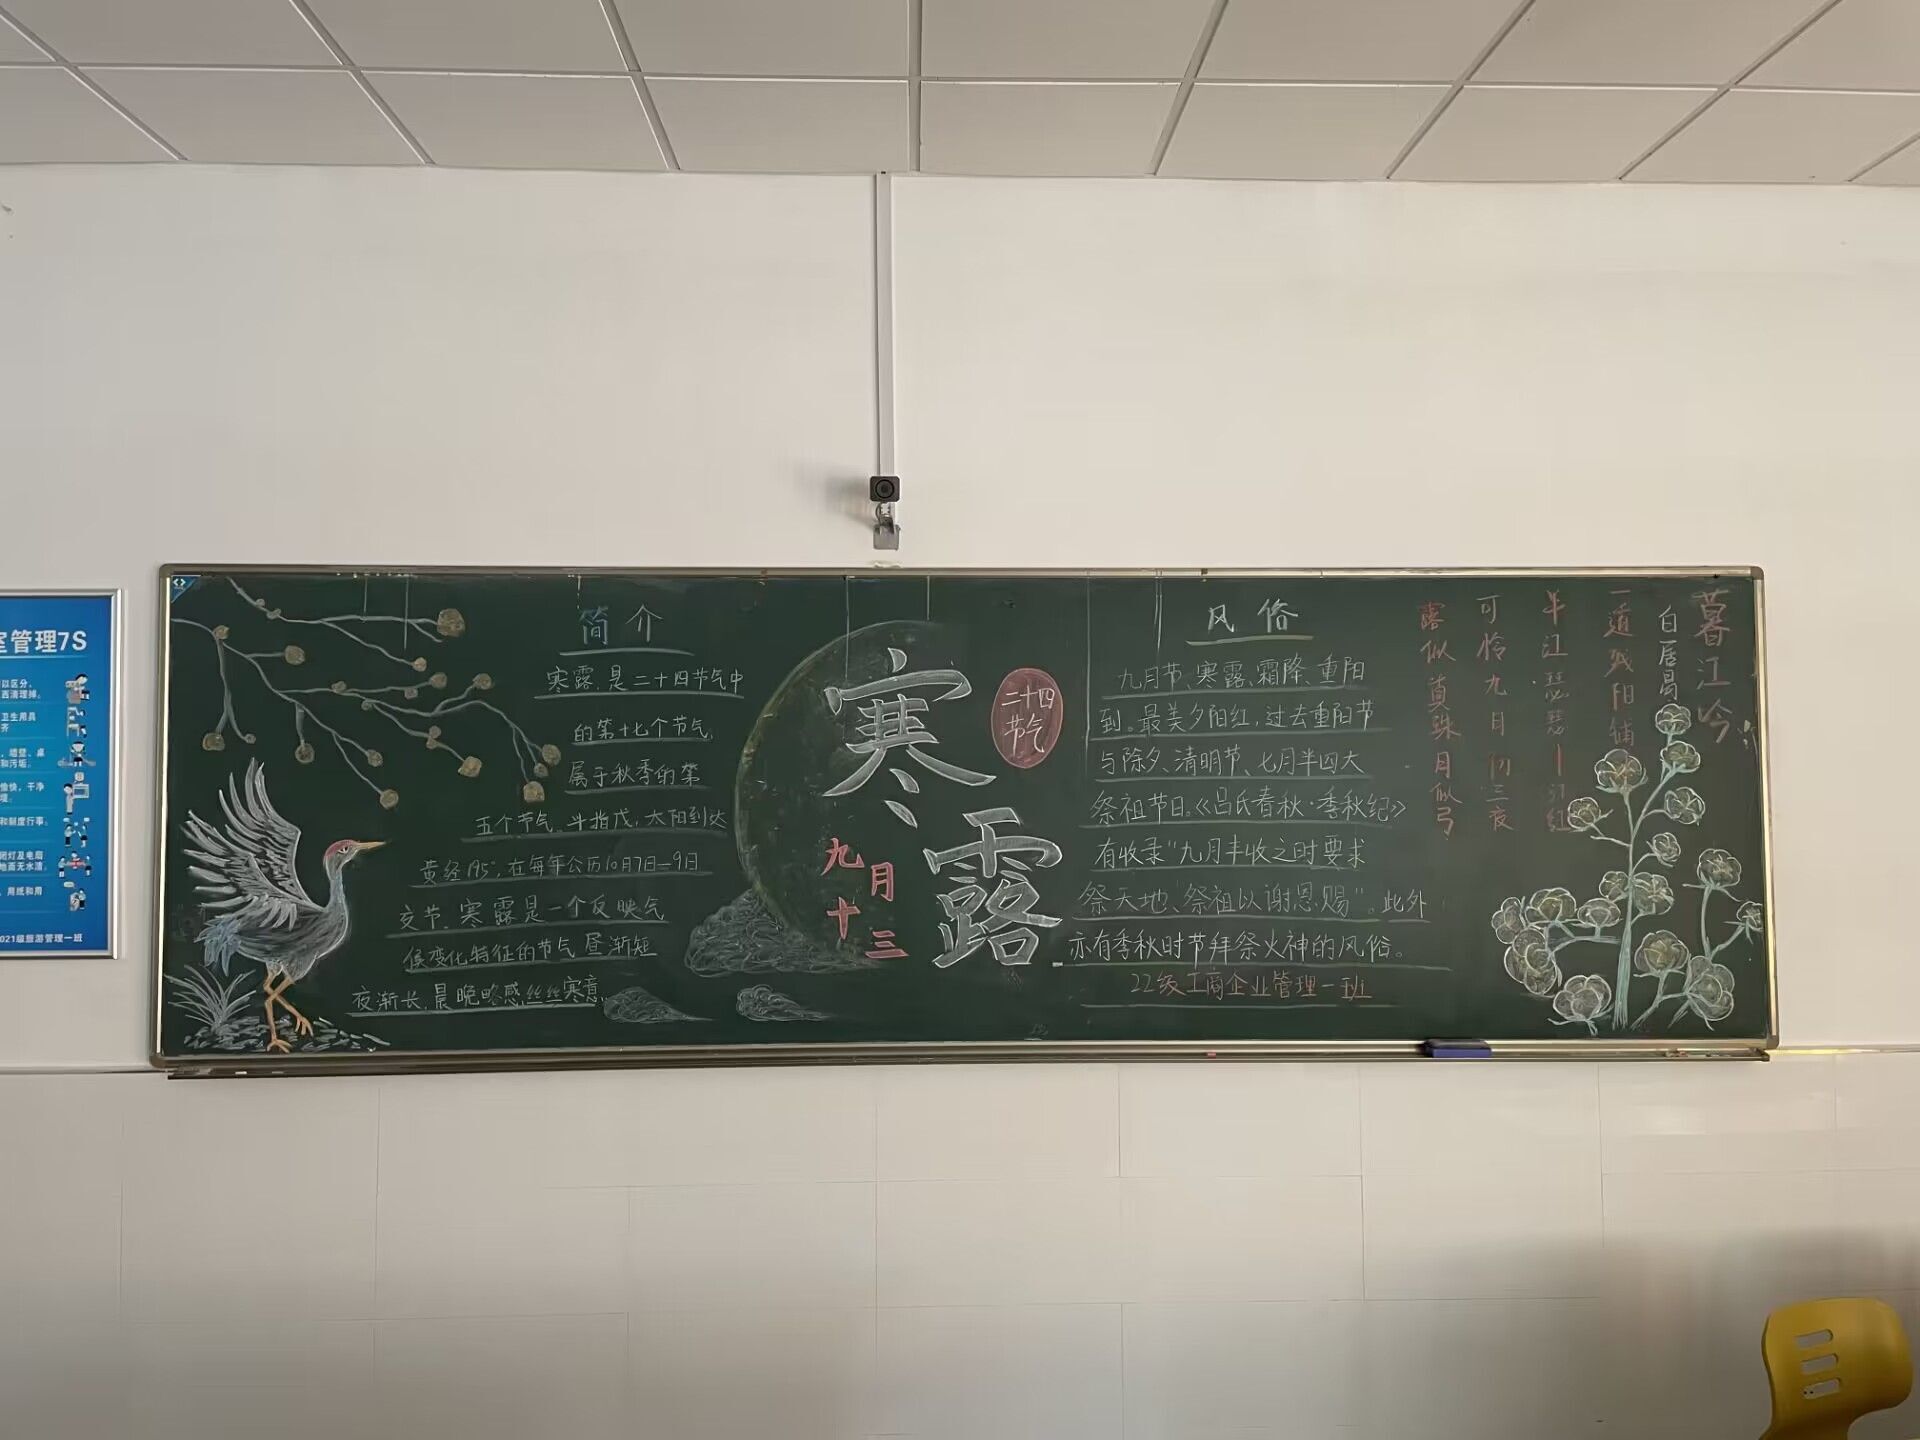 室管理7S
2021级旅游管理一班
简介
寒露,是二十四节气中
的第十七个节气,
属于秋季的第
五个节气。斗指戊,太阳到达
黄经195°,在每年公历10月7日—9日
交节。寒露是一个反映气
候变化特征的节气,昼渐短
夜渐长,晨晚略感丝丝寒意。
寒露
二十四
节气
九月
十三
风俗
九月节、寒露、霜降、重阳
到。最美夕阳红,过去重阳节
与除夕、清明节、七月半四大
祭祖节日。《吕氏春秋·季秋纪》
有收录“九月丰收之时要求
祭天地、祭祖以谢恩赐”。此外
亦有季秋时节拜祭火神的风俗。
22级工商企业管理一班
暮江吟
白居易
一道残阳铺
半江瑟瑟半江红
可怜九月初三夜
露似真珠月似弓